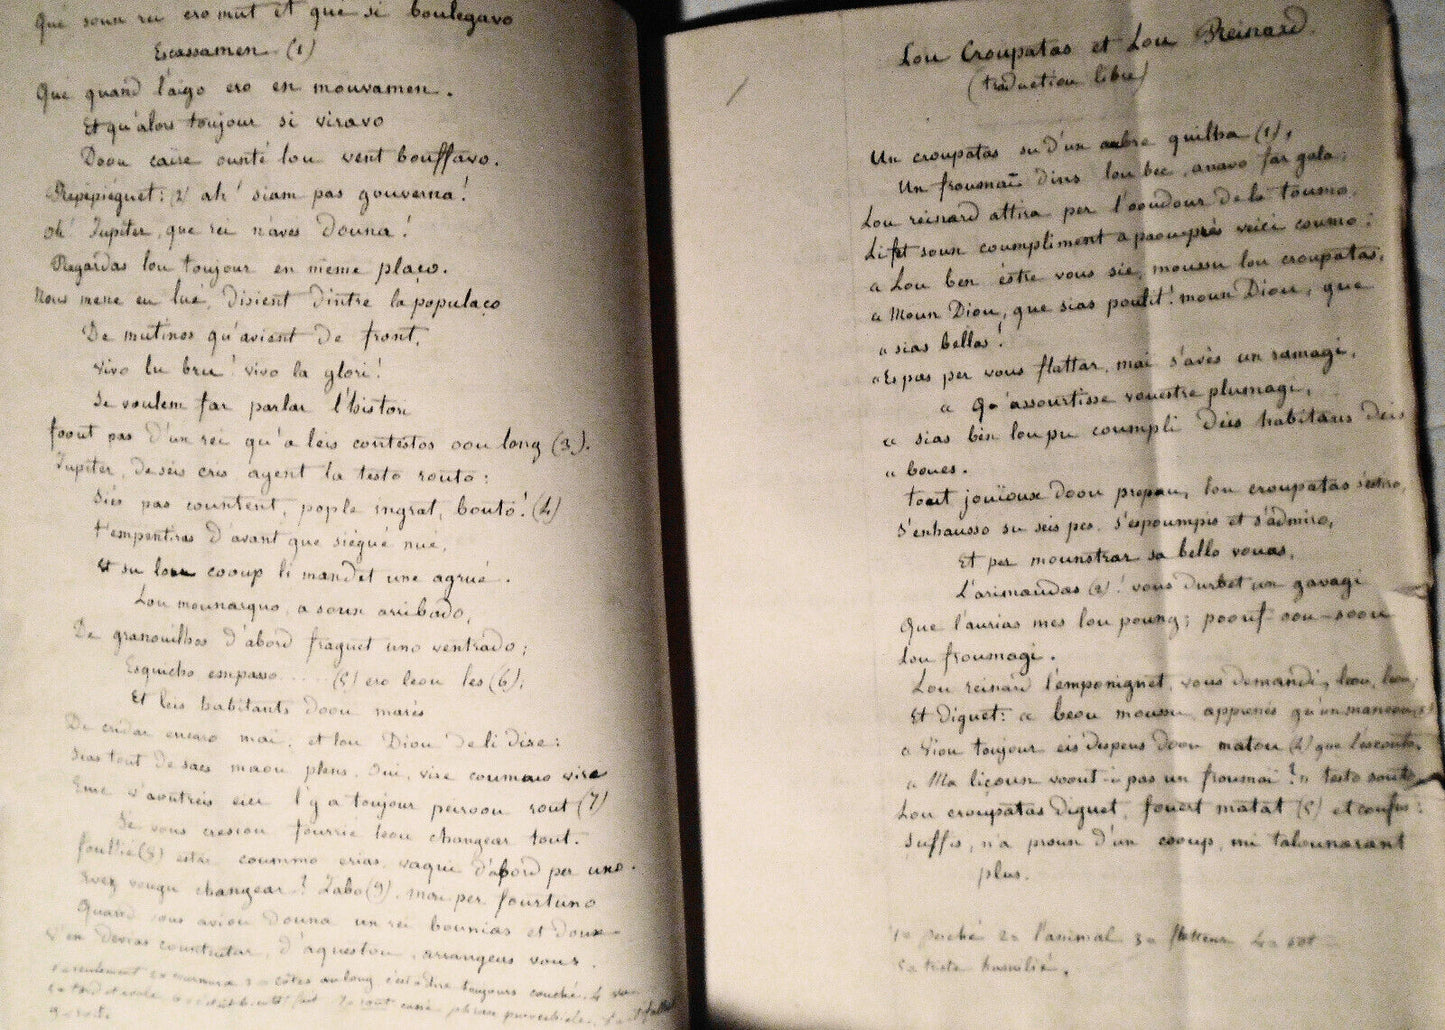 Qué soun rei ero mut et que si boulegavo
Escassamen (1)
Qué quand l'aigo ero en mouvamen.
Et qu'alors toujour si viravo
Doou caire ounté lou vent bouffavo.
Repépiéguet: (2) ah! siam pas gouverna!
Oh! Jupiter, que rei n'aves douna!
Regardas lou toujour en meme plaço.
Nous mene eu lué, disient dintre la populaço
De mutinos qu'avient de front,
Vivo lu bru! vivo la glori!
Se voulem far parlar l'histori
foout pas d'un rei qu'a leis contestos oou long (3).
Jupiter, de seis cris agent la testo routo:
Siès pas countent, pople ingrat, bouto! (4)
t'empentiras d'avant que siegué nué,
Et su lou cooup li mandet une agrué.
Lou mounarquo, a soun arribado,
De granouilhos d'abord fraguet uno ventrado;
Esquicho empasso..... (5) ero leou les (6);
Et leis habitants doou marès
De cridar encaro mai, et lou Diou de li dire:
Sias tout de sacs maou plens. Oui, vire coumaro vire
Eme v'aoutreis eici l'y a toujour puroou rout (7)
Se vous cresiou fourrié leou changear tout.
foullié (8) estre coummo erias, vaqui d'abord per uno.
Avez vougu changear? Zabo (9), maou per fourtuno
Quand vous aviou douna un rei bounias et doux
V'en devias countentar, d'aquestou, arrangeas vous.
Lou Croupatas et Lou Reinard.
(traduction libre)
Un croupatas su d'un aubre quilha (1),
Un froumaï dins lou bec, anavo far gala;
Lou reinard attira per l'ooudour de la toumo,
Li fet soun coumpliment apaouprès veici coumo:
« Lou ben éstre vous sie, moussu lou croupatas,
« Moun Diou, que sias poulit! moun Diou, que
« sias bellas!
« Es pas per vous flattar, mai s'avès un ramagi,
« Qu'assourtisse vouestre plumagi,
« sias bèn lou pu coumpli deis habitans deis
« boues.
tout jouïoux doou prepau, lou croupatas s'estiro,
S'enhausso su seis pes, s'espoumpis et s'admiro,
Et per mounstrar sa bello voues,
L'arimaudas (2)! vous durbet un gavagi
Que l'aurias mes lou poung; poouf oou-soou
Lou froumagi.
Lou reinard l'empouignet, vous demandi, leou, leou
Et diguet: « beou moussu, apprenés qu'un
« Viou toujour eis despens doou matou (4) que l'escouto,
« Ma liçoun voout-i pas un froumaï? »
Lou croupatas diguet, fouert matat (5) et confus:
Suffis, n'a proun d'un cooup, mi talounarant
plus.
1o perché 2o l'animal 3o flatteur 4o sot
5o tete humilié.